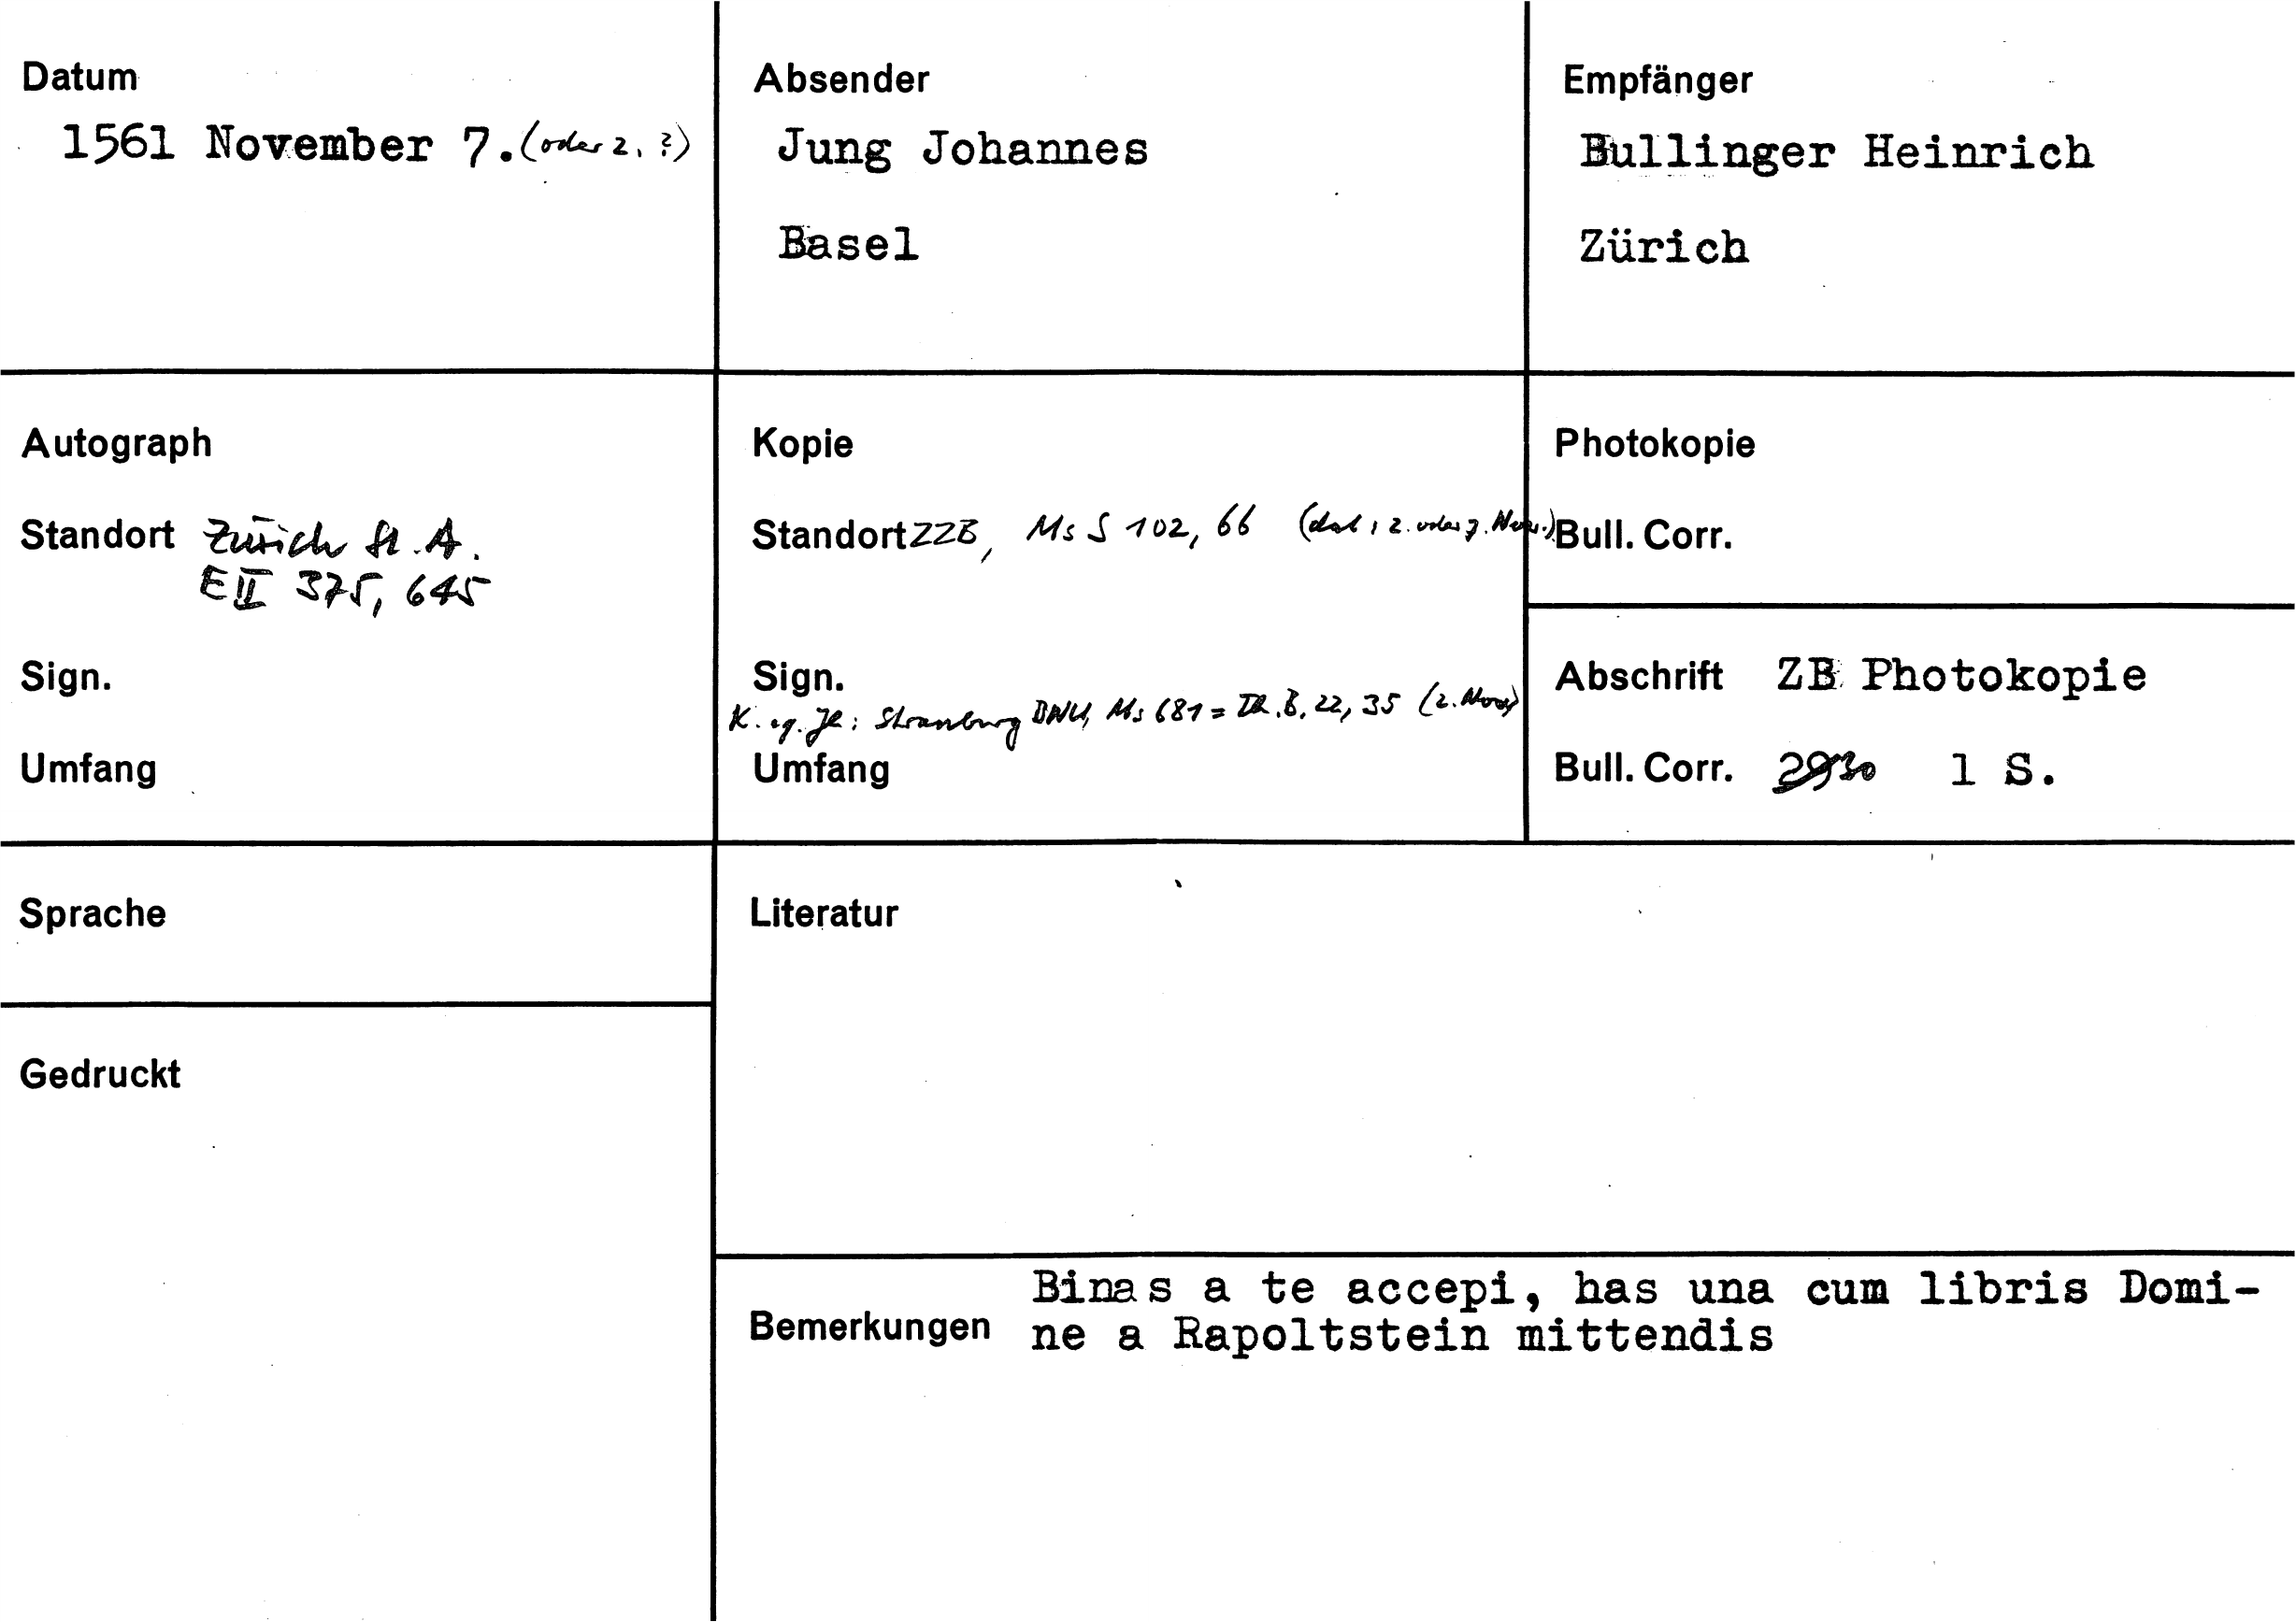 Datum
1561 November 7. (oder 2. ?)
Absender
Jung Johannes
Basel
Empfänger
Bullinger Heinrich
Zürich
Autograph
Standort Zürich St. A.
E II 375, 645
Sign.
Umfang
Kopie
Standort ZZB, Ms S 102, 66 (dat: 2. oder 7. Nov.)
Sign.
Strassburg BNU, Ms 681 = 22, 35 (2. Nov)
Umfang
Photokopie
Bull. Corr.
Abschrift ZB Photokopie
Bull. Corr. 2930 1 S.
Sprache
Gedruckt
Literatur
Bemerkungen
Binas a te accepi, has una cum libris Domi-
ne a Rapoltstein mittendis